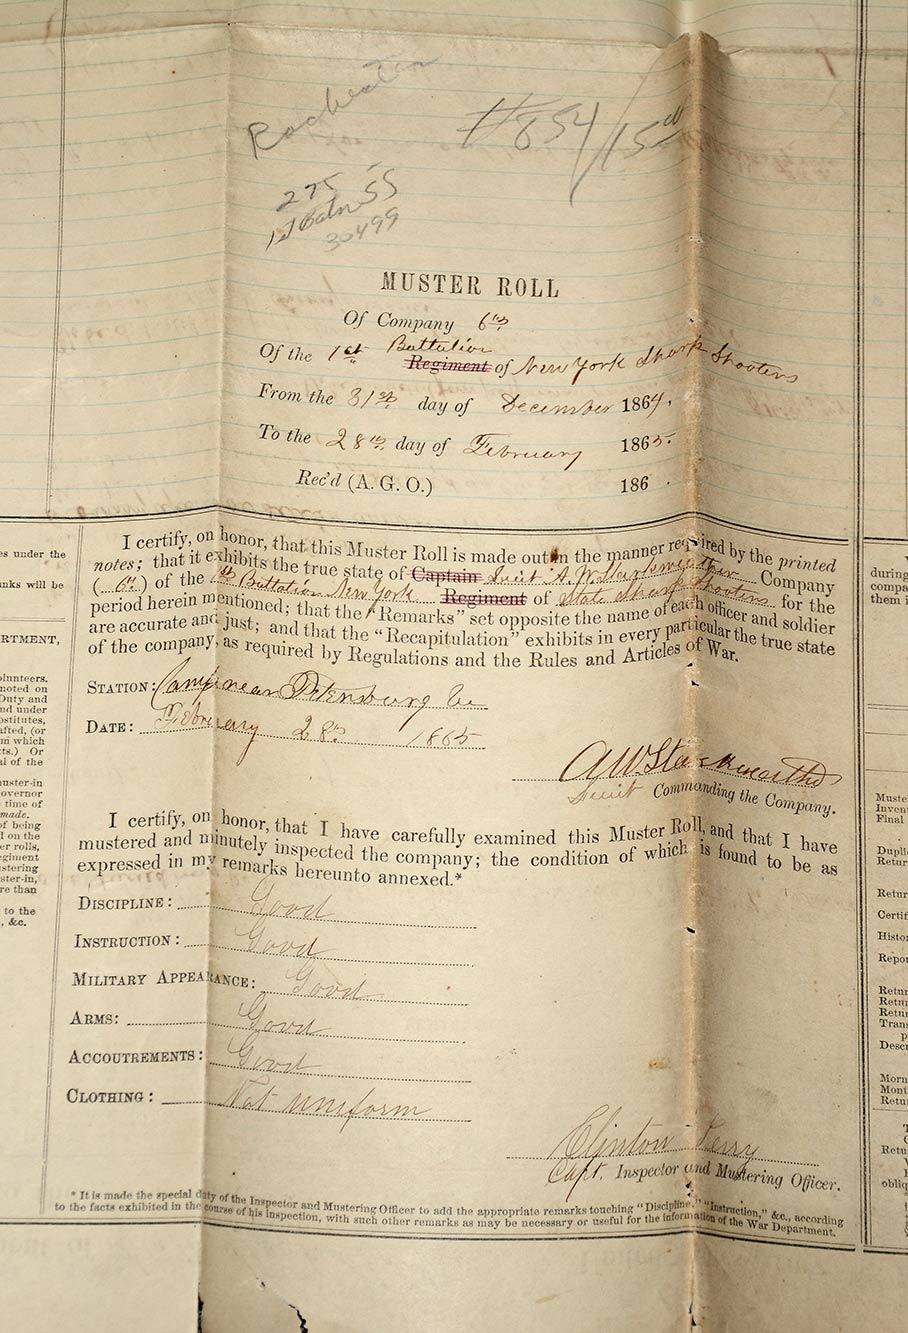 Rochester
#854/15 00
275
1st Batn SS
30499
MUSTER ROLL
Of Company 6th
Of the 1st Battalion Regiment of New York Sharp Shooters
From the 31st day of December 1864.
To the 28th day of February 1865.
Rec'd (A. G. O.) 186 .
I certify, on honor, that this Muster Roll is made out in the manner required by the printed
notes; that it exhibits the true state of Captain Lieut A. W. Starkweather Company
(6th) of the 1st Battalion New York Regiment of State Sharp Shooters for the
period herein mentioned; that the "Remarks" set opposite the name of each officer and soldier
are accurate and just; and that the "Recapitulation" exhibits in every particular the true state
of the company, as required by Regulations and the Rules and Articles of War.
STATION: Camp near Petersburg Va
DATE: February 28th 1865
A W Starkweather
Lieut Commanding the Company.
I certify, on honor, that I have carefully examined this Muster Roll, and that I have
mustered and minutely inspected the company; the condition of which is found to be as
expressed in my remarks hereunto annexed.*
DISCIPLINE: Good
INSTRUCTION: Good
MILITARY APPEARANCE: Good
ARMS: Good
ACCOUTREMENTS: Good
CLOTHING: Not uniform
Clinton Perry
Capt. Inspector and Mustering Officer.
* It is made the special duty of the Inspector and Mustering Officer to add the appropriate remarks touching "Discipline," "Instruction," &c., according
to the facts exhibited in the course of his inspection, with such other remarks as may be necessary or useful for the information of the War Department.
es under the
nks will be
RTMENT,
olunteers.
noted on
Duty and
nd under
ostitutes,
afted, (or
m which
ts.) Or
al of the
uster-in
overnor
time of
made.
of being
l on the
er rolls,
egiment
stering
ster-in,
re than
to the
, &c.
during
compa
them i
Muste
Inven
Final
Dupli
Retur
Retur
Certif
Histor
Repor
Retur
Retur
Retur
Trans
p
Descr
Morn
Mont
Retu
Retu
obliq